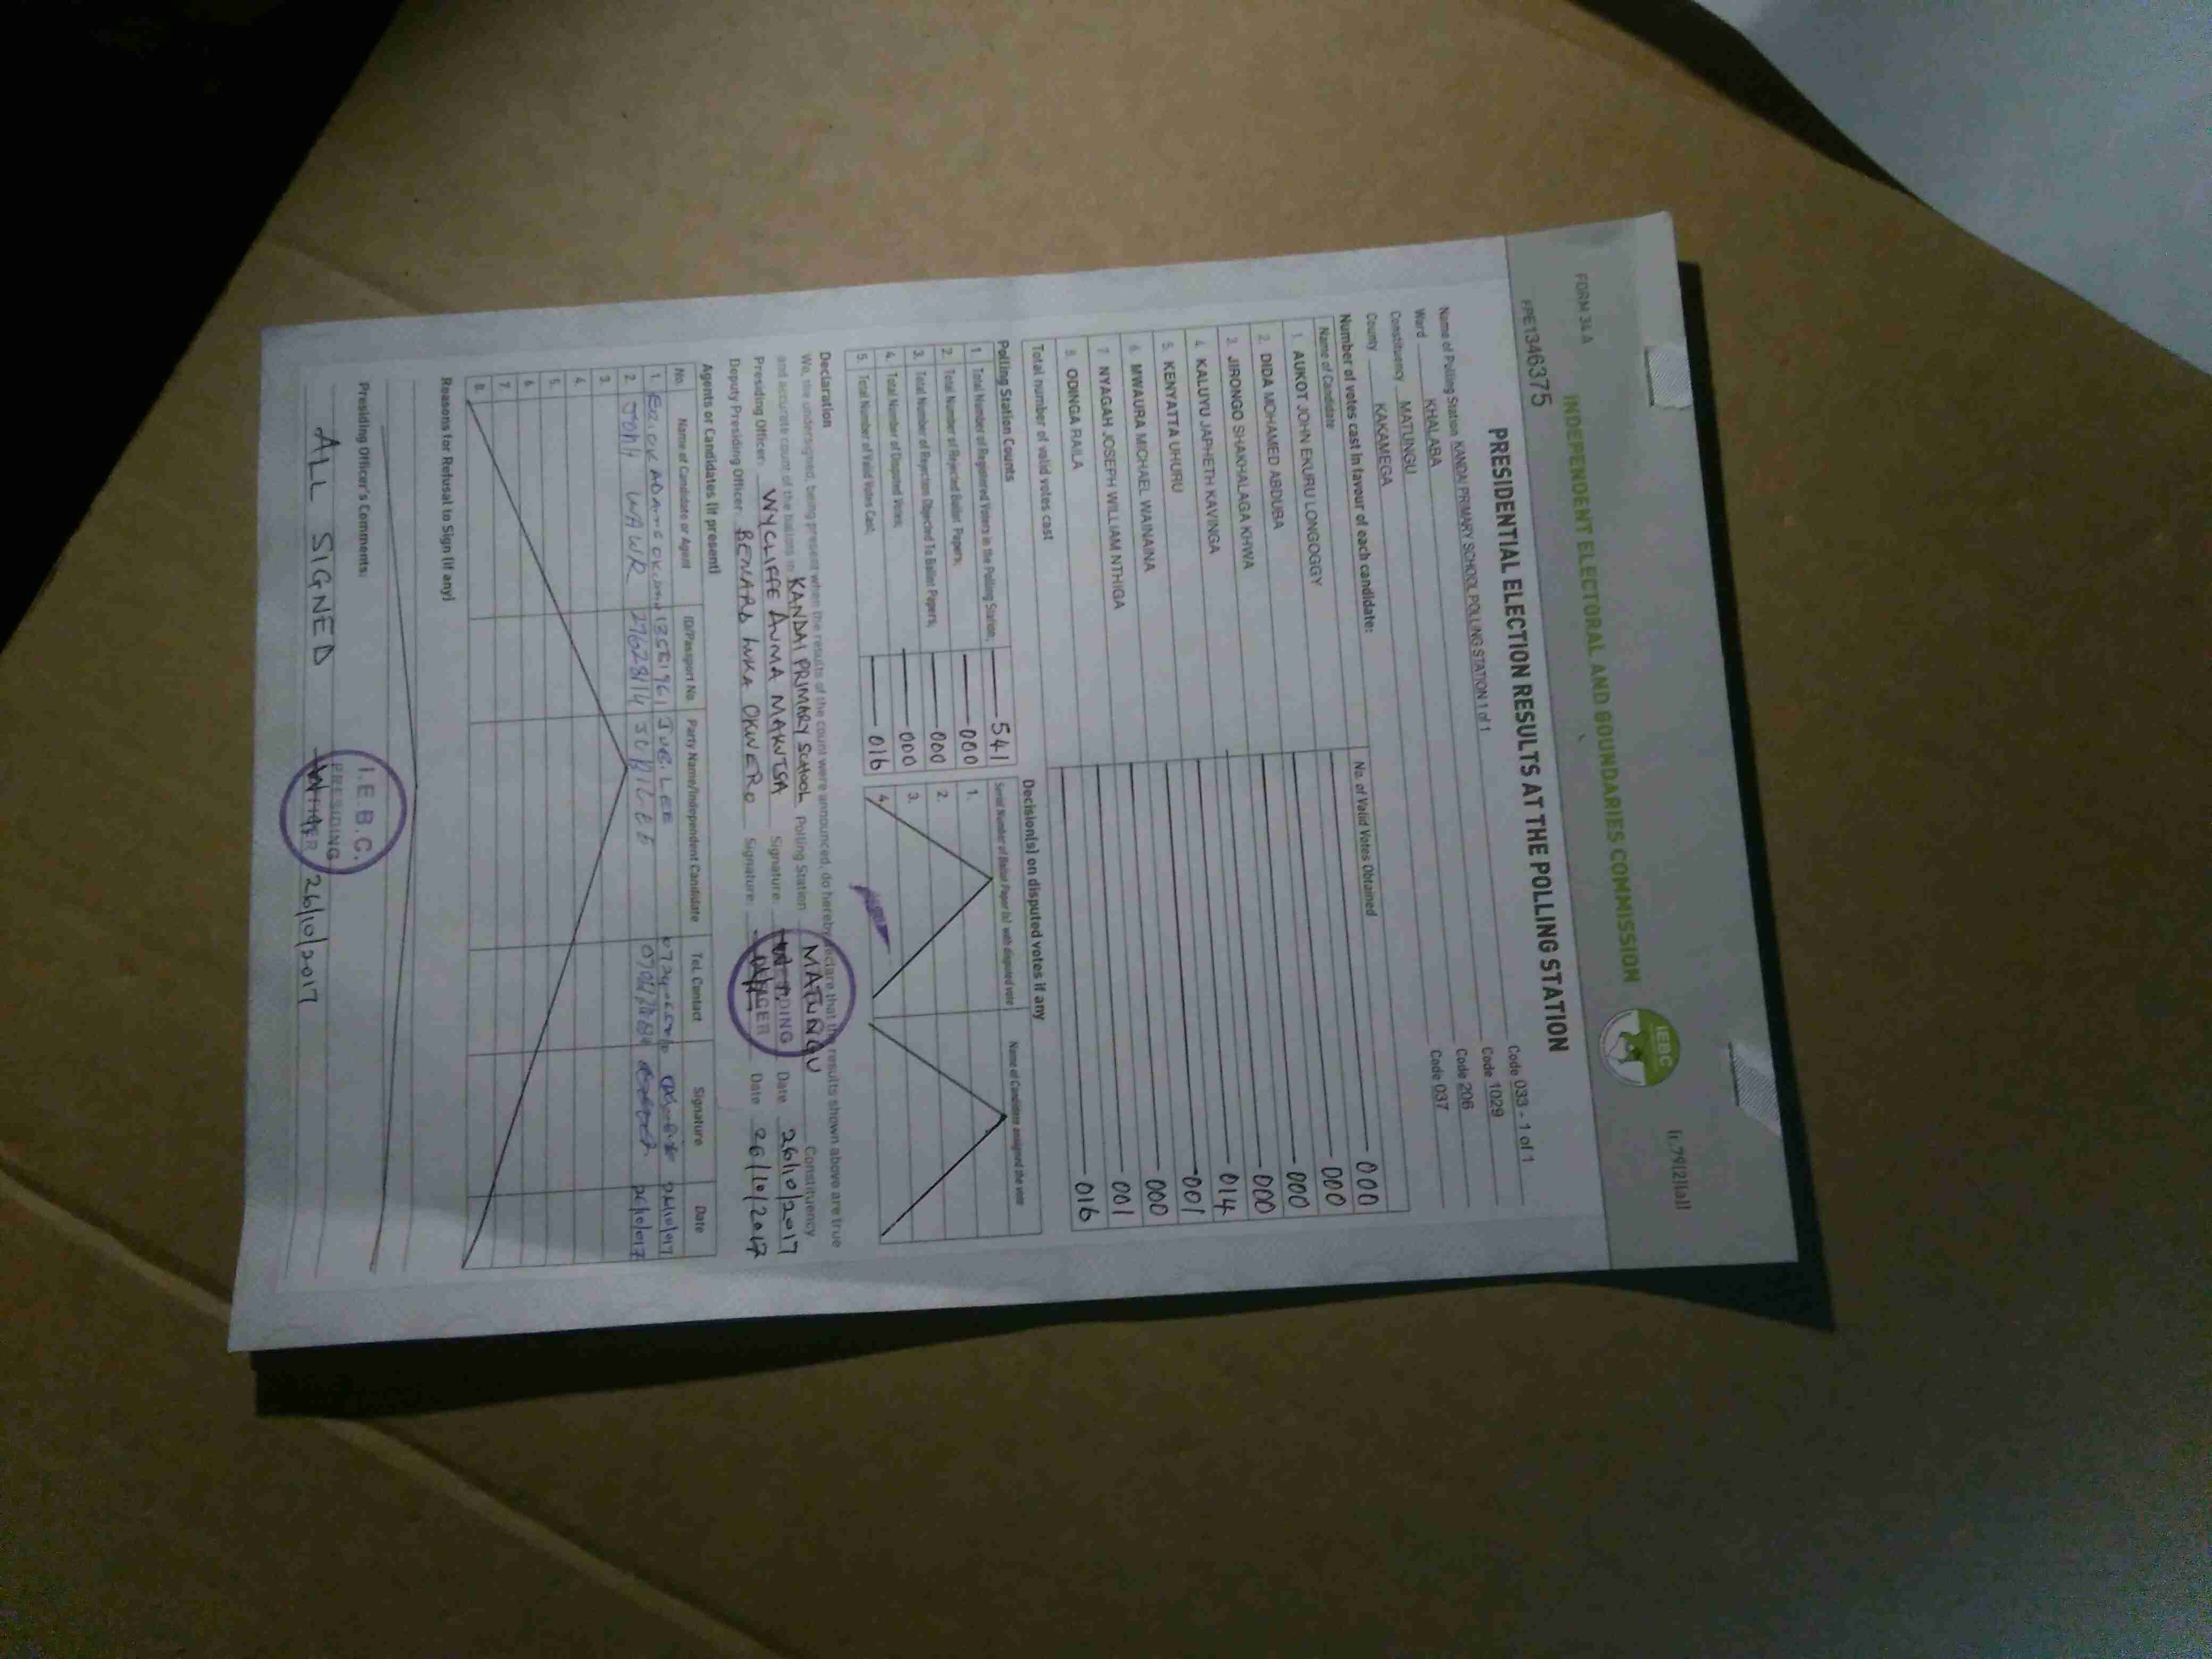 FORM 34 A
INDEPENDENT ELECTORAL AND BOUNDARIES COMMISSION
IEBC
PRE1346375
PRESIDENTIAL ELECTION RESULTS AT THE POLLING STATION
Name of Polling Station KANDAI PRIMARY SCHOOL POLLING STATION 1 of 1 Code 033 - 1 of 1
Ward KHALABA Code 1029
Constituency MATUNGU Code 206
County KAKAMEGA Code 037
Number of votes cast in favour of each candidate:
Name of Candidate No. of Valid Votes Obtained
1. AUKOT JOHN EKURU LONGOGGY 000
2. DIDA MOHAMED ABDUBA 000
3. JIRONGO SHAKHALAGA KHWA 000
4. KALUYU JAPHETH KAVINGA 000
5. KENYATTA UHURU 014
6. MWAURA MICHAEL WAINAINA 001
7. NYAGAH JOSEPH WILLIAM NTHIGA 000
8. ODINGA RAILA 001
Total number of valid votes cast 016
Polling Station Counts
1. Total Number of Registered Voters in the Polling Station; 541
2. Total Number of Rejected Ballot Papers; 000
3. Total Number of Rejection Objected To Ballot Papers; 000
4. Total Number of Disputed Votes; 000
5. Total Number of Valid Votes Cast; 016
Decision(s) on disputed votes if any
Serial Number of Ballot Paper (s) with disputed vote Name of Candidate assigned the vote
1.
2.
3.
4.
Declaration
We, the undersigned, being present when the results of the count were announced, do hereby declare that the results shown above are true
and accurate count of the ballots in KANDAI PRIMARY SCHOOL Polling Station MATUNGU Constituency
Presiding Officer: WYCLIFFE AUMA MAKUTSA Signature: Date 26/10/2017
Deputy Presiding Officer: BENARD LUKA OKWERO Signature: Date 26/10/2017
Agents or Candidates (if present)
No. Name of Candidate or Agent ID/Passport No. Party Name/Independent Candidate Tel. Contact Signature Date
1.
2. JOHN 27628114
3.
4.
5.
6.
7.
8.
Reasons for Refusal to Sign (if any)
Presiding Officer's Comments:
ALL SIGNED
I.E.B.C.
PRESIDING
26/10/2017